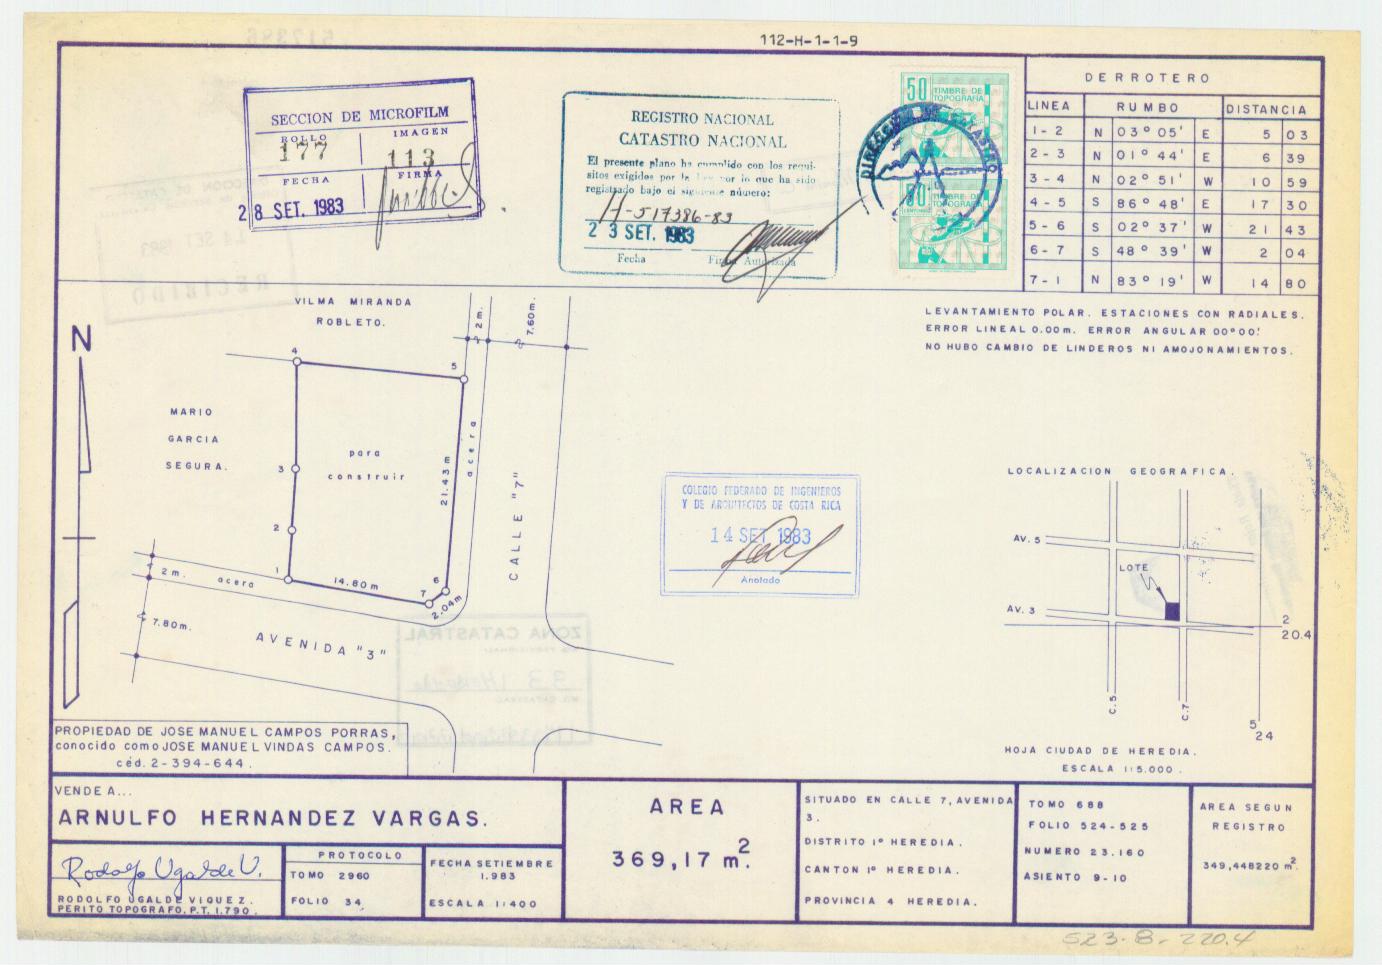 112-H-1-1-9
SECCION DE MICROFILM
ROLLO IMAGEN
177 113
FECHA FIRMA
28 SET. 1983
REGISTRO NACIONAL
CATASTRO NACIONAL
El presente plano ha cumplido con los requi-
sitos exigidos por la Ley por lo que ha sido
registrado bajo el siguiente número:
H-517386-83
23 SET. 1983
Fecha Firma Autorizada
50 TIMBRE DE
TOPOGRAFIA
DIRECCION DE CATASTRO
TIMBRE DE
TOPOGRAFIA
DERROTERO
LINEA RUMBO DISTANCIA
1-2 N 03° 05' E 5 03
2-3 N 01° 44' E 6 39
3-4 N 02° 51' W 10 59
4-5 S 86° 48' E 17 30
5-6 S 02° 37' W 21 43
6-7 S 48° 39' W 2 04
7-1 N 83° 19' W 14 80
LEVANTAMIENTO POLAR. ESTACIONES CON RADIALES.
ERROR LINEAL 0.00m. ERROR ANGULAR 00°00'.
NO HUBO CAMBIO DE LINDEROS NI AMOJONAMIENTOS.
VILMA MIRANDA
ROBLETO.
2m.
7.60m.
N
4
5
MARIO
GARCIA
SEGURA.
para
construir
acera
3
21.43m
CALLE "7"
2
1
14.80m
6
7
2.04m
2m. acera
7.80m.
AVENIDA "3"
COLEGIO FEDERADO DE INGENIEROS
Y DE ARQUITECTOS DE COSTA RICA
14 SET 1983
Anotado
LOCALIZACION GEOGRAFICA.
AV. 5
LOTE
AV. 3
2
20.4
C.5
C.7
5
24
HOJA CIUDAD DE HEREDIA.
ESCALA 1:5.000.
PROPIEDAD DE JOSE MANUEL CAMPOS PORRAS,
conocido como JOSE MANUEL VINDAS CAMPOS.
céd. 2-394-644.
VENDE A...
ARNULFO HERNANDEZ VARGAS.
Rodolfo Ugalde V.
RODOLFO UGALDE VIQUEZ.
PERITO TOPOGRAFO, P.T. 1.790.
PROTOCOLO
TOMO 2960
FOLIO 34
FECHA SETIEMBRE
1.983
ESCALA 1:400
AREA
369,17 m².
SITUADO EN CALLE 7, AVENIDA
3.
DISTRITO 1º HEREDIA.
CANTON 1º HEREDIA.
PROVINCIA 4 HEREDIA.
TOMO 688
FOLIO 524-525
NUMERO 23.160
ASIENTO 9-10
AREA SEGUN
REGISTRO
349,448220 m².
523-8-220.4